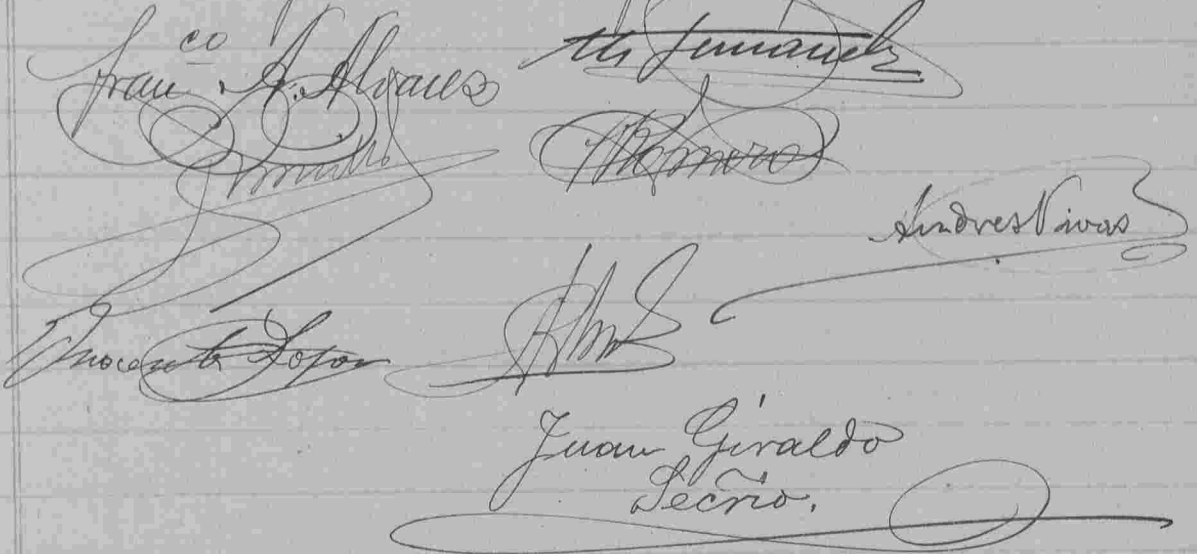 Franco. A. Alvarez
M Fernandez
Romero
Andres Vivas
Inocente Lopez
Juan Giraldo
Secrio.